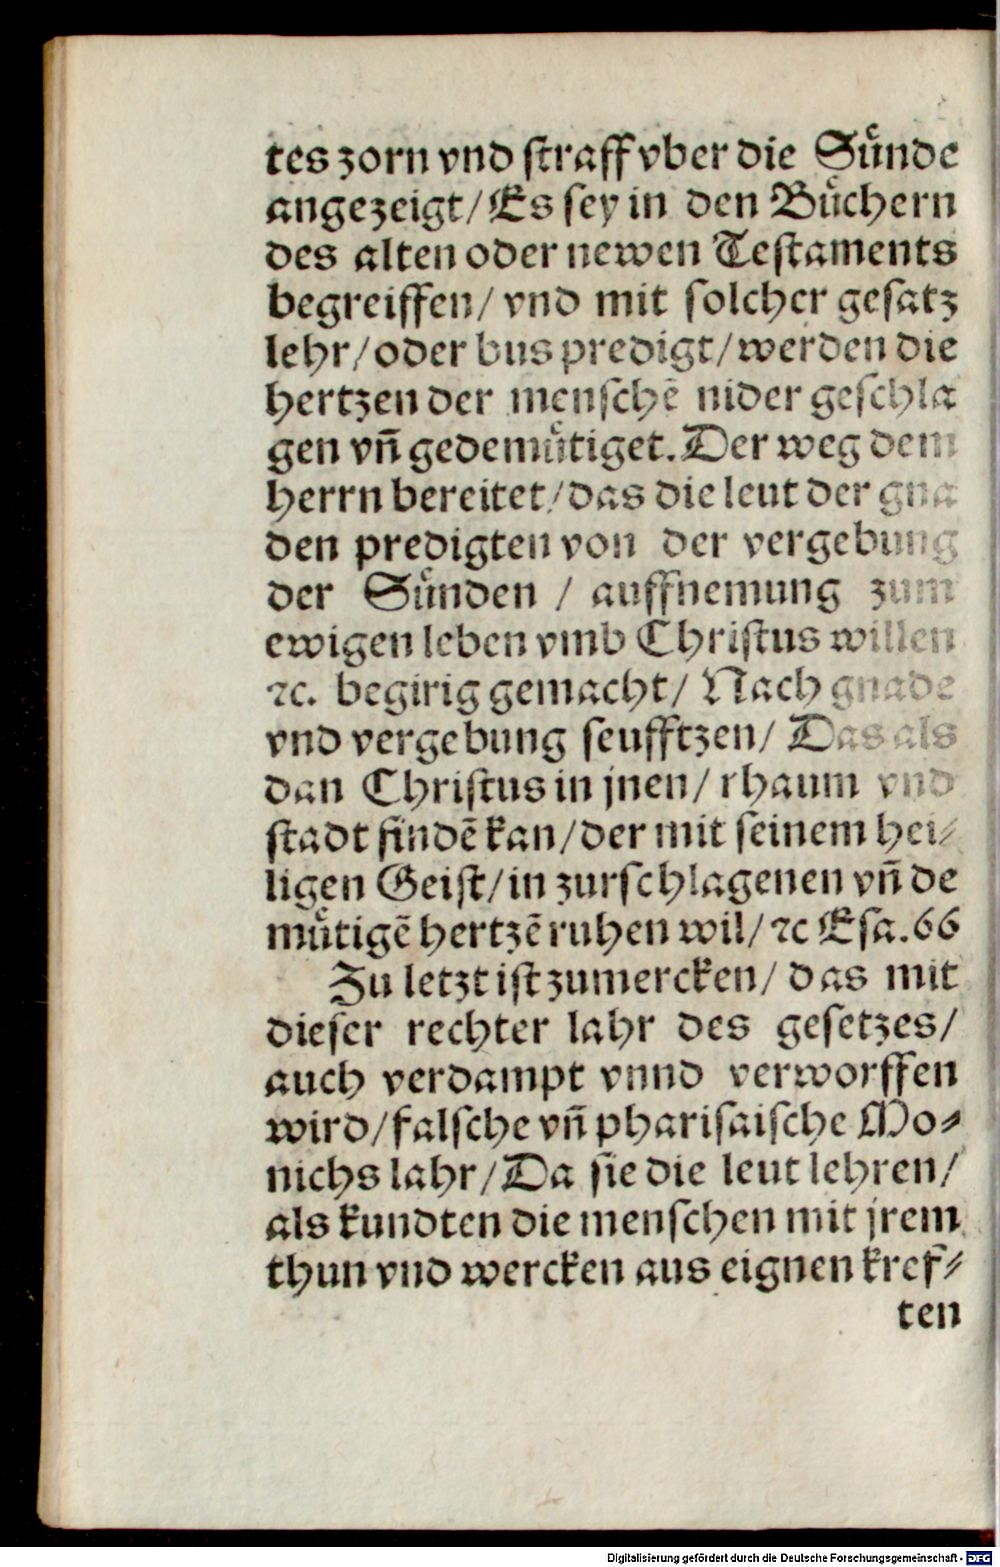 tes zorn vnd ſtraff vber die Suͤnde
angezeigt/ Es ſey in den Buͤchern
des alten oder newen Teſtaments
begreiffen/ vnd mit ſolcher geſatz
lehr/ oder bus predigt/ werden die
hertzen der menſchẽ nider geſchla
gen vñ gedemuͤtiget. Der weg dem
herrn bereitet/ das die leut der gna
den predigten von der vergebung
der Suͤnden / auffnemung zum
ewigen leben vmb Chriſtus willen
ꝛc. begirig gemacht/ Nach gnade
vnd vergebung ſeufftzen/ Das als
dan Chriſtus in jnen/ rhaum vnd
ſtadt findẽ kan/ der mit ſeinem hei⸗
ligen Geiſt/ in zurſchlagenen vñ de
muͤtigẽ hertzẽ ruhen wil/ ꝛc Eſa. 66
Zu letzt iſt zumercken/ das mit
dieſer rechter lahr des geſetzes/
auch verdampt vnnd verworffen
wird/ falſche vñ phariſaiſche Mo⸗
nichs lahr/ Da ſie die leut lehren/
als kundten die menſchen mit jrem
thun vnd wercken aus eignen kref⸗
ten
Digitalisierung gefördert durch die Deutsche Forschungsgemeinschaft - DFG